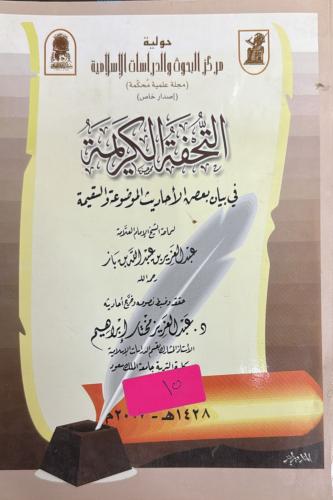 حولية
مركز البحوث والدراسات الإسلامية
(مجلة علمية محكمة)
(إصدار خاص)
التحفة الكريمة
في بيان بعض الأحاديث الموضوعة والسقيمة
لسماحة الشيخ الإمام العلامة
عبد العزيز بن عبد الله بن باز
رحمه الله
حققه وضبط نصوصه وخرج أحاديثه
د. عبد العزيز مختار إبراهيم
الأستاذ المشارك بقسم الدراسات الإسلامية
كلية التربية جامعة الملك سعود
١٤٢٨هـ - ٢٠٠٧م